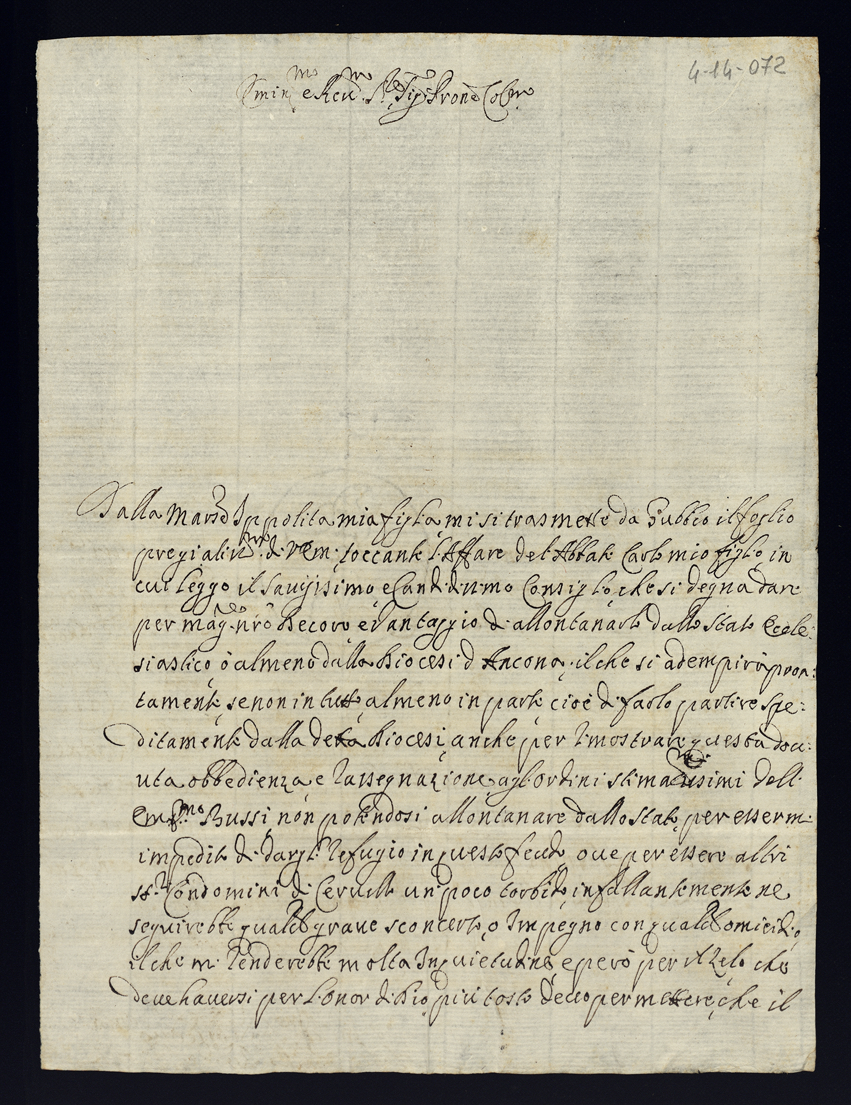 4-14-072
Emin.mo e Rev.mo S.r Sig.r Pron.e Col.mo
Dalla Marsa Ippolita mia figlia mi si trasmette da Gubbio il foglio
pregiatis.mo di Vem. toccante l'Affare del Abbate Carlo mio figlio, in
cui leggo il Savijsimo e Candidissimo Consiglio che si degna dare
per mag. nro Decoro e Vantaggio di allontanarlo dallo Stato Eccle:
siastico ò almeno dalla Diocesi d Ancona, il che si adempirà pron:
tamente se non in tutto, almeno in parte cioè di farlo partire spe:
ditamente dalla detta Diocesi, anche per dimostrare questa dou:
uta obbedienza e rassegnazione agl'ordini stimatissimi dell
Em.mo Bussi, non potendosi allontanare dallo Stato, per esserm.
impedito di dargli refugio in questo feudo oue per essere altri
SS.ri Condomini di Ceruelli un poco torbido, infallantemente ne
seguirebbe qualche graue sconcerto, o Impegno con qualche omicidio
il che mi renderebbe molta Inquietudine, e però per il Zelo che
deue hauersi per l'onor di Dio, più tosto deuo permettere, che il